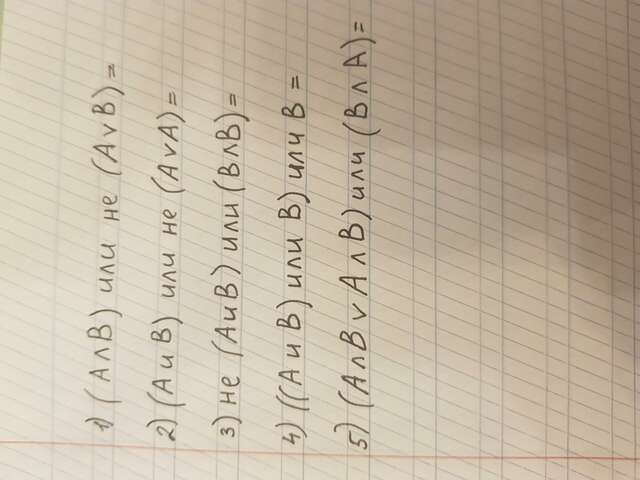 1) (A∧B) или не (A∨B) =
2) (A и B) или не (A∨A) =
3) не (A и B) или (B∧B) =
4) ((A и B) или B) или B =
5) (A∧B∨A∧B) или (B∧A) =